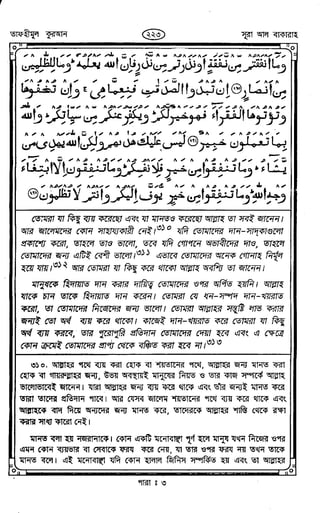 তাফহীমুল কুরআন ২২৩ সূরা আল বাকারাহ
وَمَا أَنْفَقْتُمْ مِنْ نَفَقَةٍ أَوْ نَذَرْتُمْ مِنْ نَذْرٍ فَإِنَّ اللهَ يَعْلَمُهُ وَمَا لِلظّٰلِمِيْنَ
مِنْ أَنْصَارٍ ۝ إِنْ تُبْدُوا الصَّدَقٰتِ فَنِعِمَّا هِيَ وَإِنْ تُخْفُوْهَا
وَتُؤْتُوْهَا الْفُقَرَاءَ فَهُوَ خَيْرٌ لَّكُمْ وَيُكَفِّرُ عَنْكُمْ مِنْ سَيِّاٰتِكُمْ وَاللهُ
بِمَا تَعْمَلُوْنَ خَبِيْرٌ ۝ لَيْسَ عَلَيْكَ هُدٰىهُمْ وَلٰكِنَّ اللهَ يَهْدِيْ مَنْ
يَّشَاءُ وَمَا تُنْفِقُوْا مِنْ خَيْرٍ فَلِأَنْفُسِكُمْ وَمَا تُنْفِقُوْنَ إِلَّا ابْتِغَاءَ
وَجْهِ اللهِ وَمَا تُنْفِقُوْا مِنْ خَيْرٍ يُّوَفَّ إِلَيْكُمْ وَأَنْتُمْ لَا تُظْلَمُوْنَ ۝
তোমরা যা কিছু ব্যয় করেছো এবং যা মানতও করেছো আল্লাহ তা সবই জানেন।
আর জালেমদের কোন সাহায্যকারী নেই।৩১০ যদি তোমাদের দান-সাদকাগুলো
প্রকাশ্যে করো, তাহলে তাও ভালো, তবে যদি গোপনে অভাবীদের দাও, তাহলে
তোমাদের জন্য এটিই বেশী ভালো।৩১১ এভাবে তোমাদের অনেক গোনাহ নির্মূল
হয়ে যায়।৩১২ আর তোমরা যা কিছু করে থাকো আল্লাহ অবশ্যি তা জানেন।
মানুষকে হিদায়াত দান করার দায়িত্ব তোমাদের ওপর অর্পিত হয়নি। আল্লাহ
যাকে চান তাকে হিদায়াত দান করেন। তোমরা যে ধন-সম্পদ দান-খয়রাত
করো, তা তোমাদের নিজেদের জন্য ভালো। তোমরা আল্লাহর সন্তুষ্টি লাভ করার
জন্যই তো অর্থ ব্যয় করে থাকো। কাজেই দান-খয়রাত করে তোমরা যা কিছু
অর্থ ব্যয় করবে, তার পুরোপুরি প্রতিদান তোমাদের দেয়া হবে এবং এ ক্ষেত্রে
কোন ক্রমেই তোমাদের প্রাপ্য থেকে বঞ্চিত করা হবে না।৩১৩
৩১০. আল্লাহর পথে ব্যয় করা হোক বা শয়তানের পথে, আল্লাহর জন্য মানত করা
হোক বা গায়রুল্লাহর জন্য, উভয় অবস্থায়ই মানুষের নিয়ত ও তার কাজ সম্পর্কে আল্লাহ
ভালোভাবেই জানেন। যারা আল্লাহর জন্য ব্যয় করে থাকে এবং তাঁর জন্যই মানত করে
তারা তাদের প্রতিদান পাবে। আর যেসব জালেম শয়তানের পথে ব্যয় করে থাকে এবং
আল্লাহকে বাদ দিয়ে অন্যদের জন্য মানত করে, তাদেরকে আল্লাহর শাস্তি থেকে রক্ষা
করার সাধ্য কারো নেই।
মানত বলা হয় নজরানাকে। কোন একটি মনোবাঞ্ছা পূর্ণ হলে মানুষ যখন নিজের ওপর
এমন কোন ব্যয়ভার বা সেবাকে ফরয করে নেয়, যা তার ওপর ফরয নয় তখন তাকে
মানত বলে। এই মনোবাঞ্ছা যদি কোন হালাল জিনিস সম্পর্কিত হয় এবং তা আল্লাহর
পারা : ৩